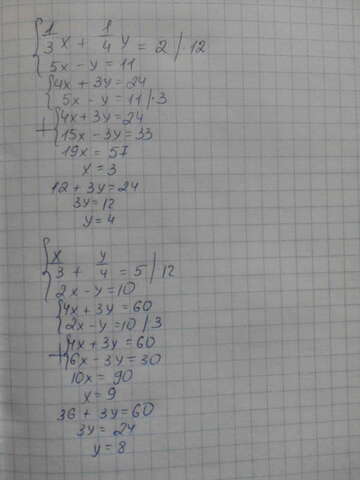 1/3 x + 1/4 y = 2 / · 12
5x - y = 11
4x + 3y = 24
5x - y = 11 / · 3
+ 4x + 3y = 24
15x - 3y = 33
19x = 57
x = 3
12 + 3y = 24
3y = 12
y = 4
x/3 + y/4 = 5 / 12
2x - y = 10
4x + 3y = 60
2x - y = 10 / 3
+ 4x + 3y = 60
6x - 3y = 30
10x = 90
x = 9
36 + 3y = 60
3y = 24
y = 8